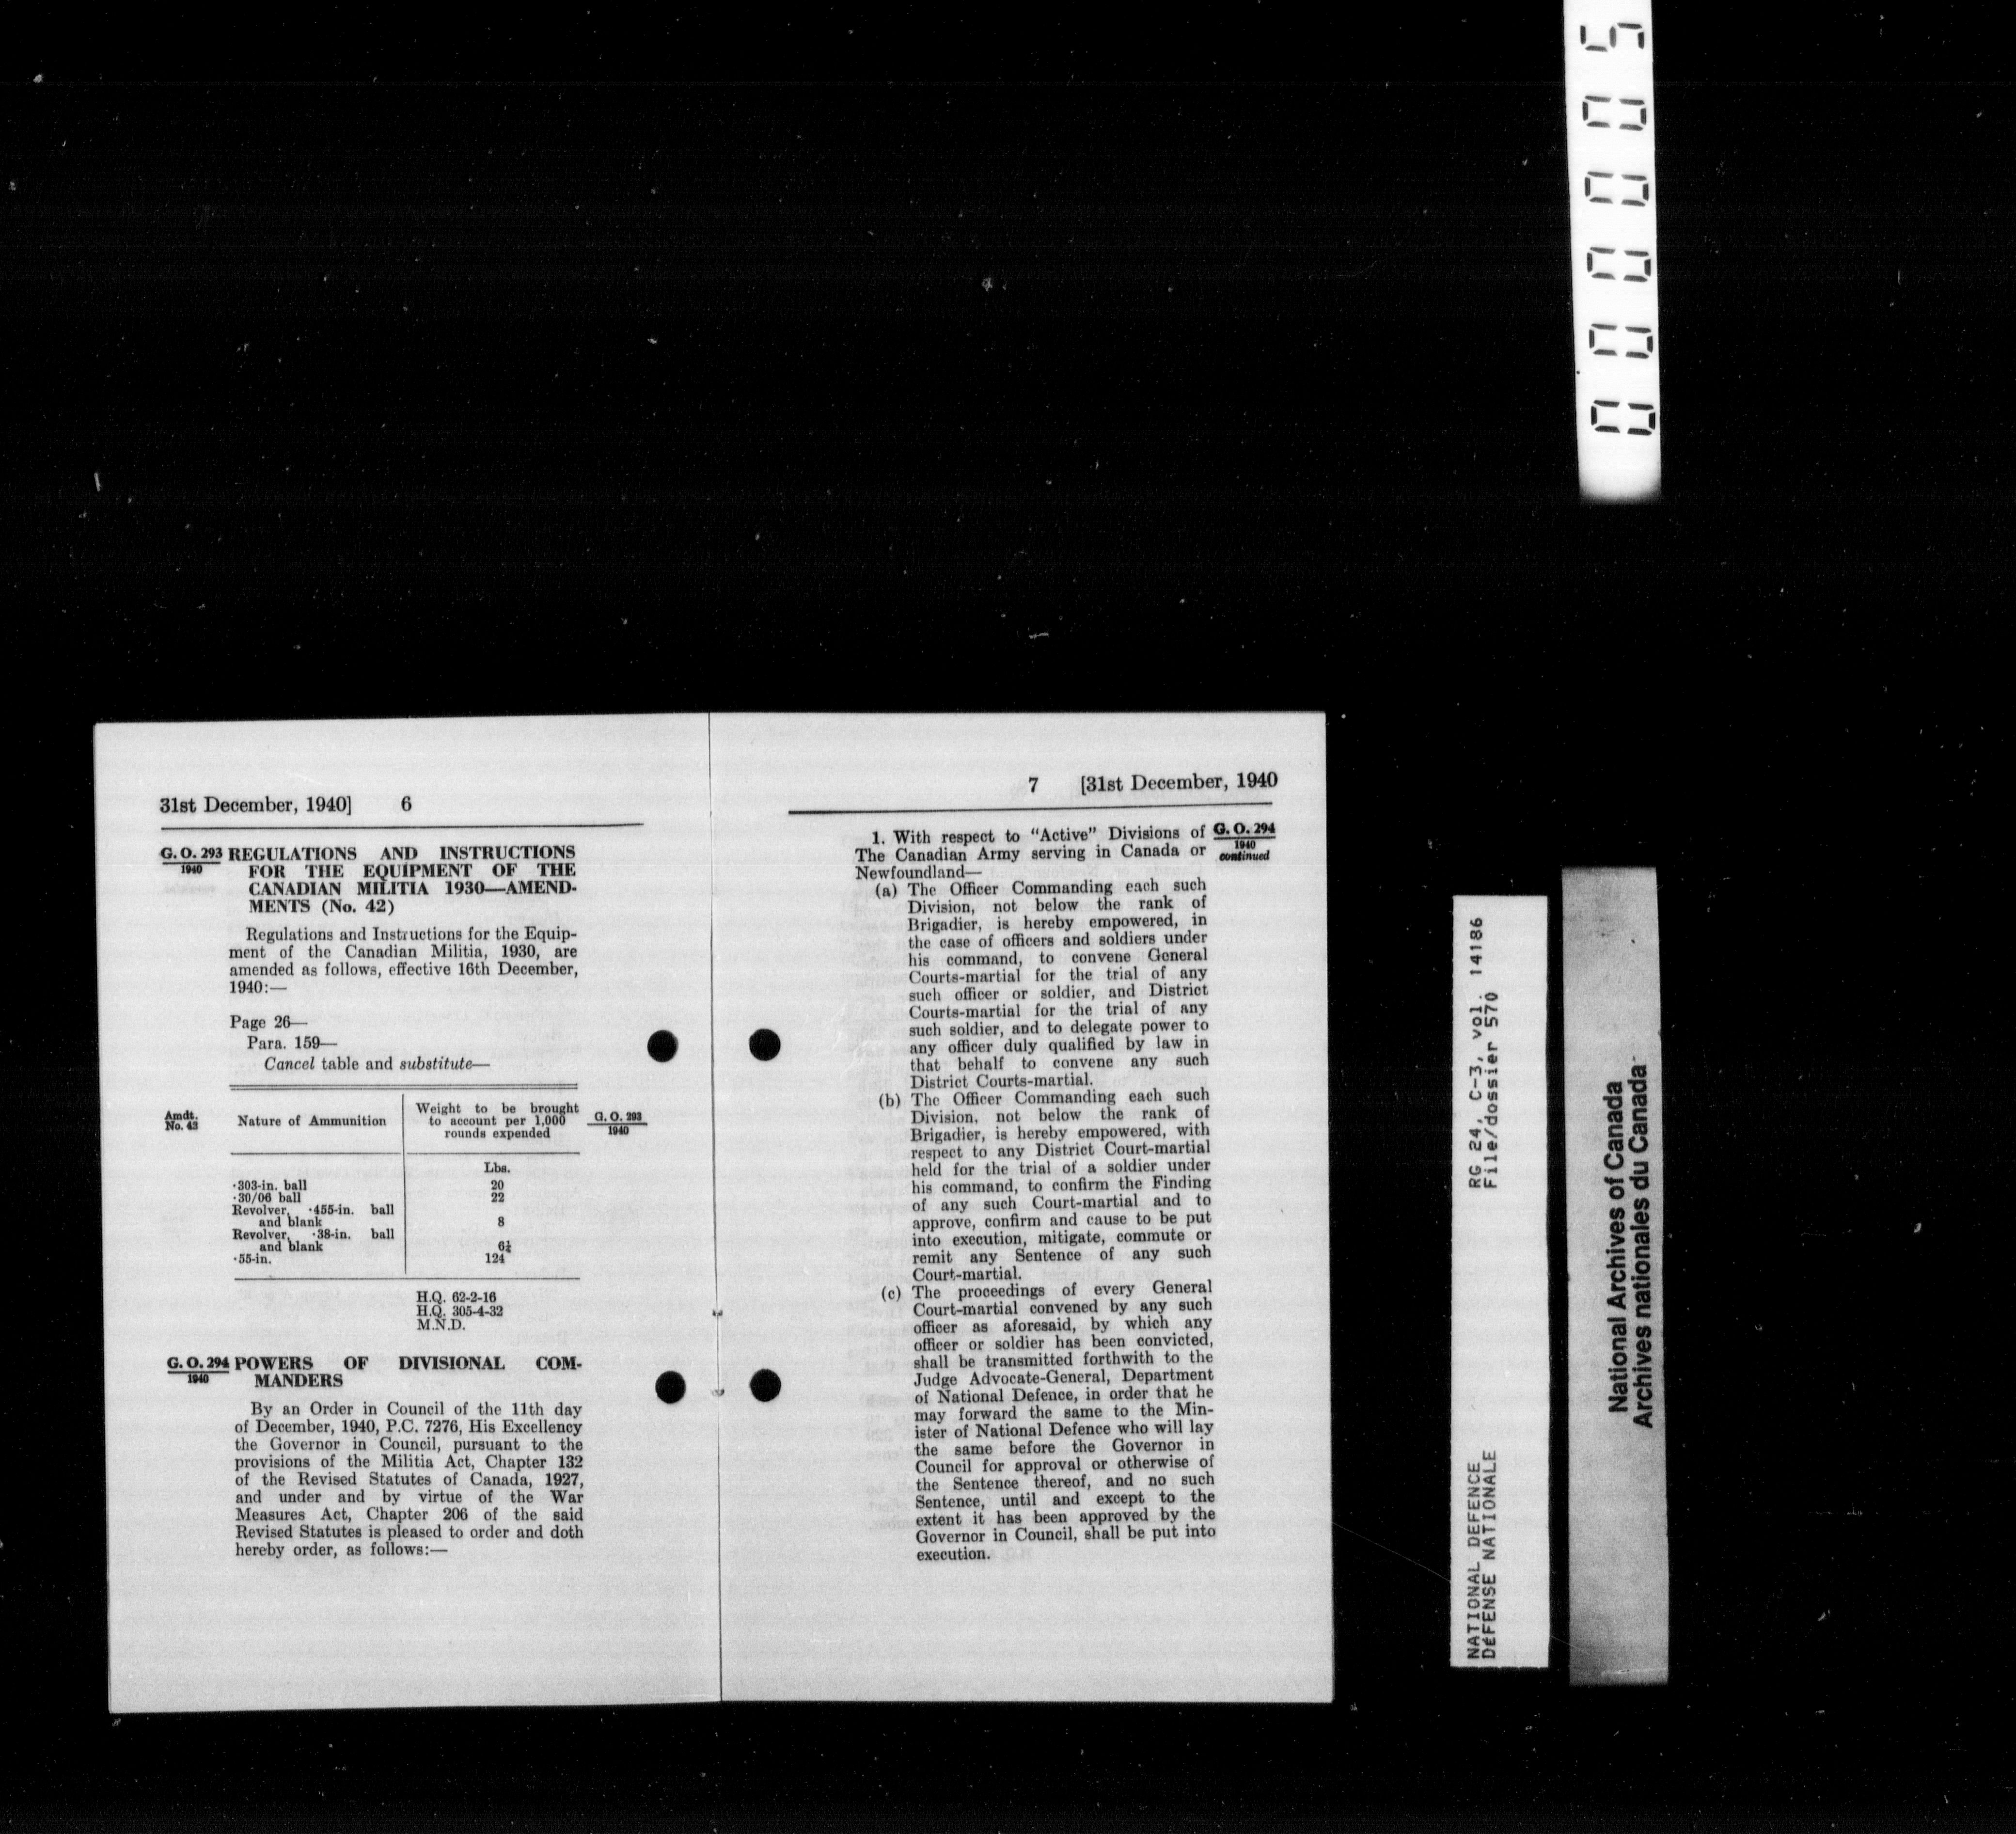 31st December, 1940] 6
G. O. 293
1940
REGULATIONS AND INSTRUCTIONS
FOR THE EQUIPMENT OF THE
CANADIAN MILITIA 1930—AMEND-
MENTS (No. 42)
Regulations and Instructions for the Equip-
ment of the Canadian Militia, 1930, are
amended as follows, effective 16th December,
1940:—
Page 26—
Para. 159—
Cancel table and substitute—
Amdt.
No. 42
Nature of Ammunition
Weight to be brought
to account per 1,000
rounds expended
G. O. 293
1940
Lbs.
·303-in. ball 20
·30/06 ball 22
Revolver, ·455-in. ball
and blank 8
Revolver, ·38-in. ball
and blank
·55-in. 124
H.Q. 62-2-16
H.Q. 305-4-32
M.N.D.
G. O. 294
1940
POWERS OF DIVISIONAL COM-
MANDERS
By an Order in Council of the 11th day
of December, 1940, P.C. 7276, His Excellency
the Governor in Council, pursuant to the
provisions of the Militia Act, Chapter 132
of the Revised Statutes of Canada, 1927,
and under and by virtue of the War
Measures Act, Chapter 206 of the said
Revised Statutes is pleased to order and doth
hereby order, as follows:—
7 [31st December, 1940
G. O. 294
1940
continued
1. With respect to "Active" Divisions of
The Canadian Army serving in Canada or
Newfoundland—
(a) The Officer Commanding each such
Division, not below the rank of
Brigadier, is hereby empowered, in
the case of officers and soldiers under
his command, to convene General
Courts-martial for the trial of any
such officer or soldier, and District
Courts-martial for the trial of any
such soldier, and to delegate power to
any officer duly qualified by law in
that behalf to convene any such
District Courts-martial.
(b) The Officer Commanding each such
Division, not below the rank of
Brigadier, is hereby empowered, with
respect to any District Court-martial
held for the trial of a soldier under
his command, to confirm the Finding
of any such Court-martial and to
approve, confirm and cause to be put
into execution, mitigate, commute or
remit any Sentence of any such
Court-martial.
(c) The proceedings of every General
Court-martial convened by any such
officer as aforesaid, by which any
officer or soldier has been convicted,
shall be transmitted forthwith to the
Judge Advocate-General, Department
of National Defence, in order that he
may forward the same to the Min-
ister of National Defence who will lay
the same before the Governor in
Council for approval or otherwise of
the Sentence thereof, and no such
Sentence, until and except to the
extent it has been approved by the
Governor in Council, shall be put into
execution.
NATIONAL DEFENCE RG 24, C-3, vol. 14186
DÉFENSE NATIONALE File/dossier 570
National Archives of Canada
Archives nationales du Canada
000005